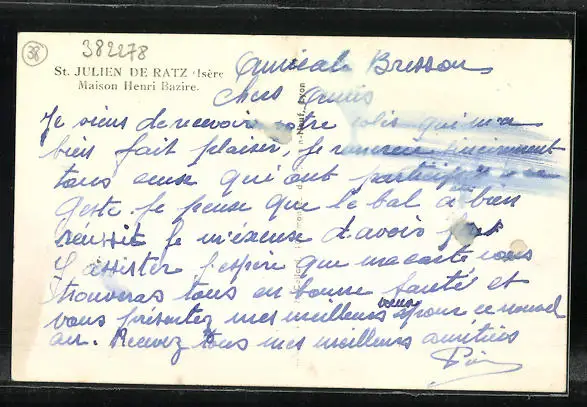 38
382278
St. JULIEN DE RATZ (Isère)
Maison Henri Bazire.
Amicale Bresson
Chers Amis
Je viens de recevoir votre colis qui m'a
bien fait plaisir, Je remercie sincèrement
tous ceux qui ont participé à ce
geste. Je pense que le bal a bien
réussit Je m'éxcuse d'avoir pas
y assister j'espère que ma carte vous
trouveras tous en bonne santé et
vous présentez mes meilleurs voeux pour ce nouvel
an. Recevez tous mes meilleurs amitiés